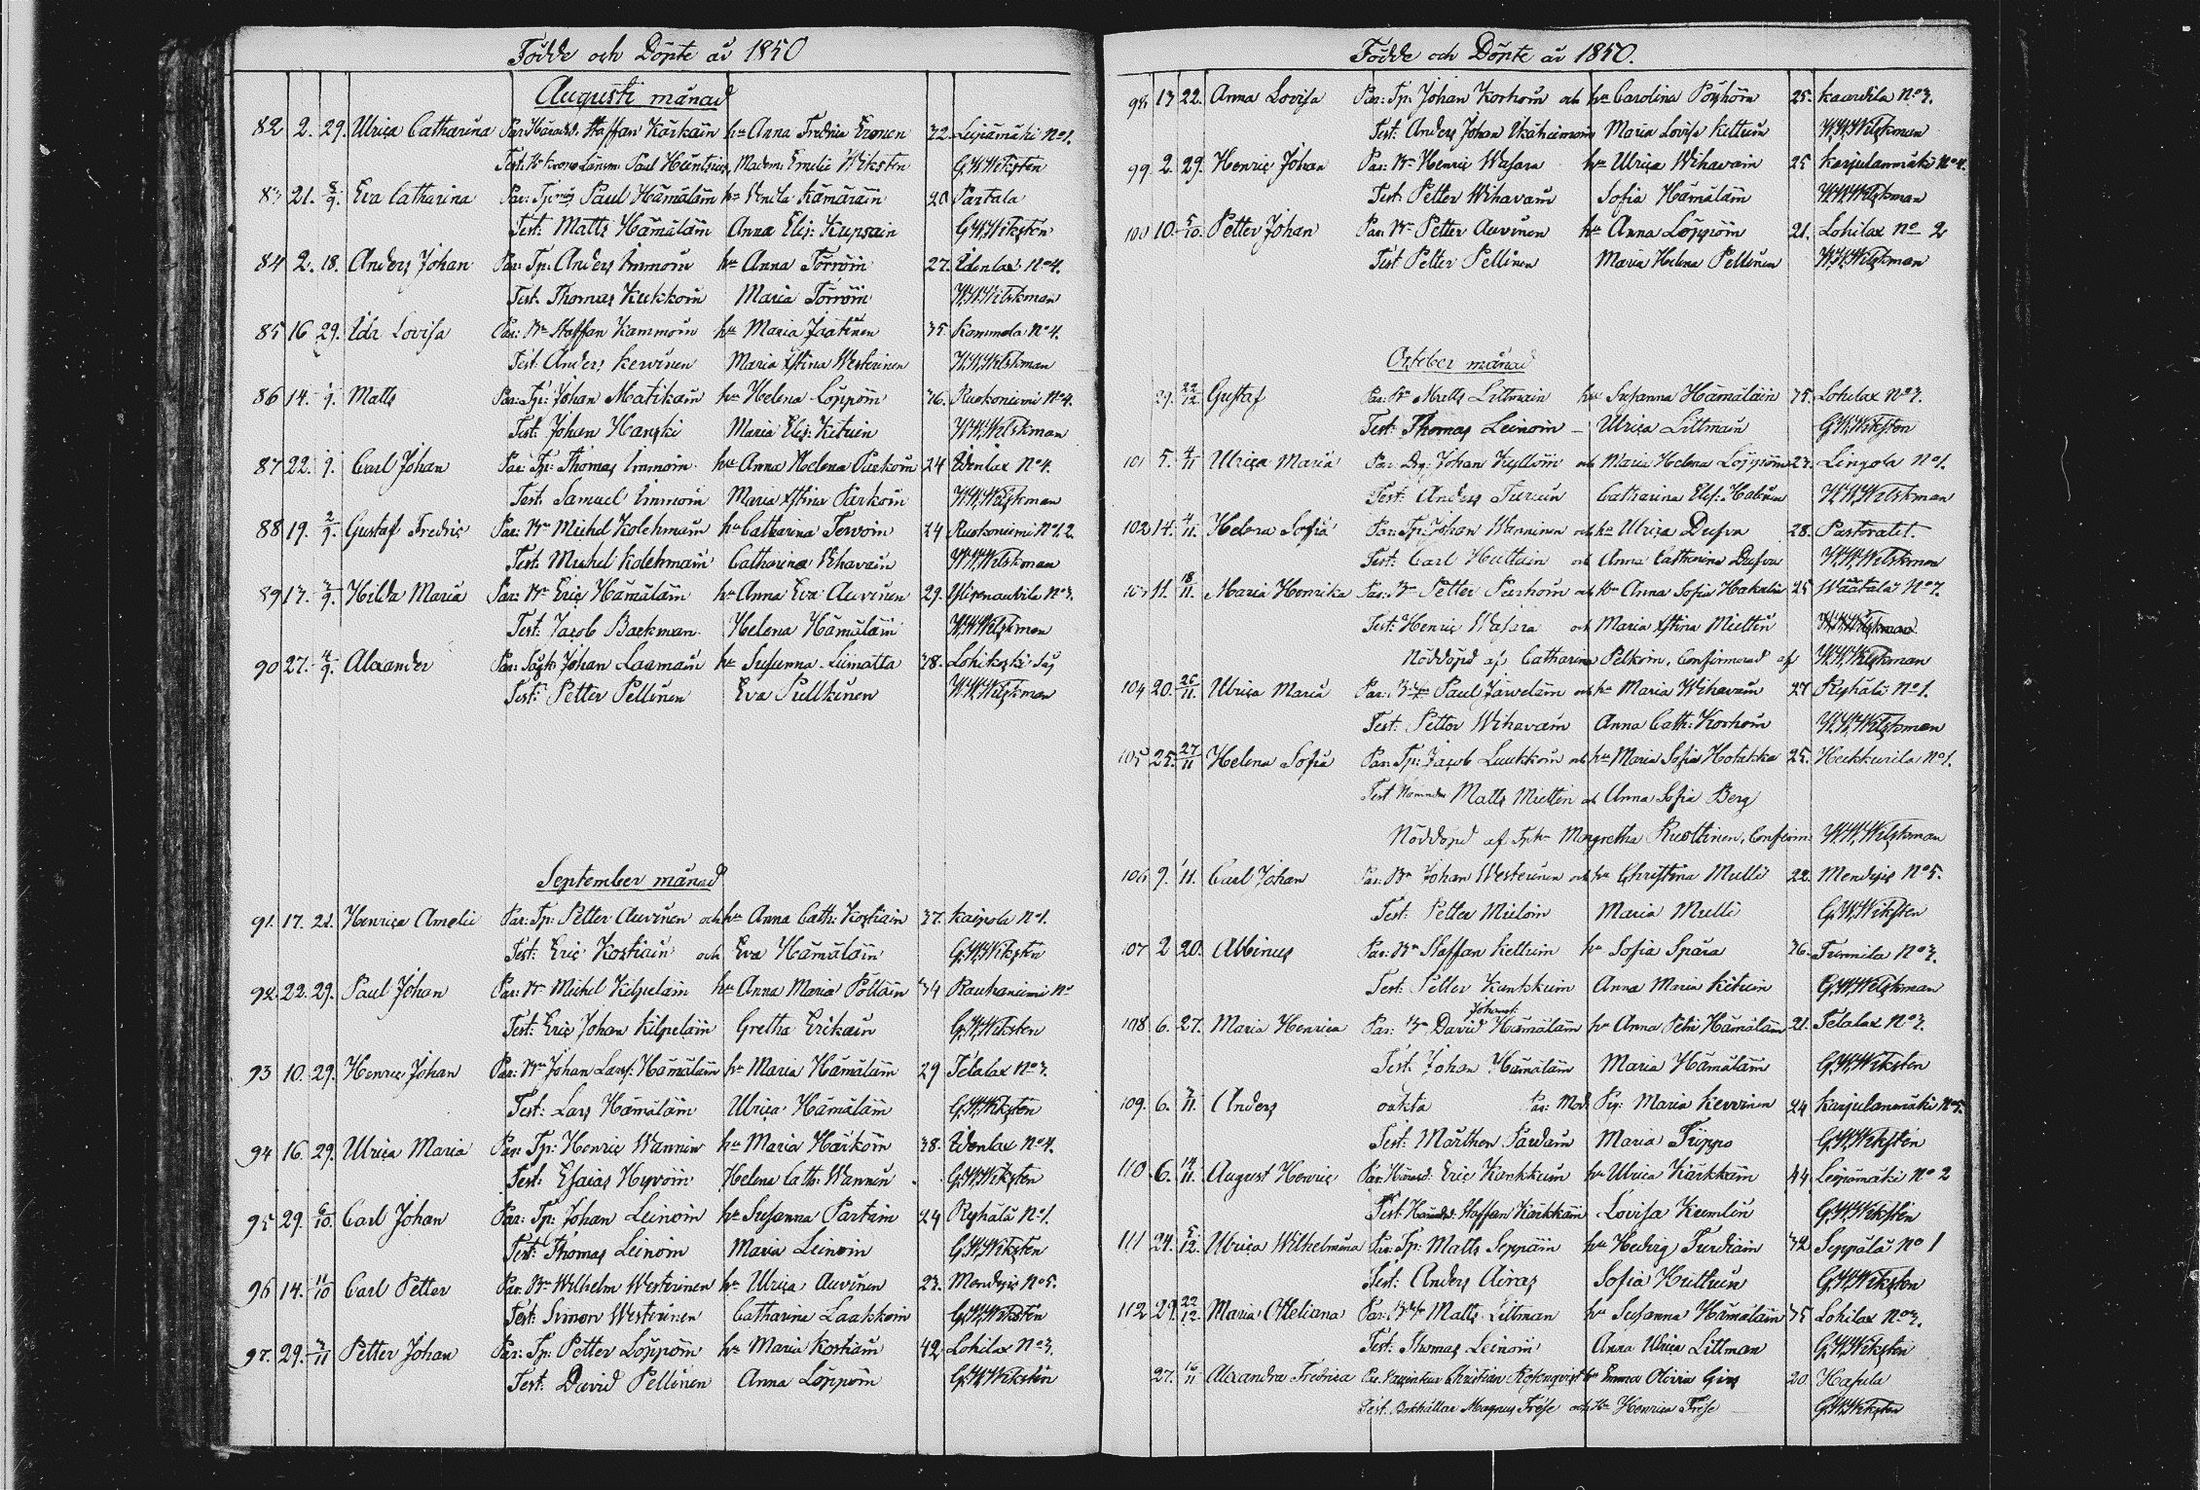 Födde och Döpte år 1850
Augusti månad
82 2. 29. Ulrica Catharina Par: Härads. Staffan Kärkäin hu Anna Fredrica Eronen 32. Leijämäki No 1.
Test: Kr Krono Länsm Paul Heintzius Madem: Emelie Wiksten G.W.Wiksten
83 21. 3/9. Eva Catharina Par: Paul Hämäläin hu Kämäräin 20 Partala
Test: Matts Hämäläin Anna Elis: Kupiain G.W.Wiksten
84 2. 18. Anders Johan Par: Tp: Anders Immoin hu Anna Törröin 27. Idenlax No 4.
Test: Thomas Kukkoin Maria Törröin W.W.Wilskman
85 16 29. Ida Lovisa Par: Bn Staffan Kammoin hu Maria Jäätinen 35 Kommola No 4.
Test: Anders Kervinen Maria Xstina Westerinen W.W.Wilskman
86 14. 1/9. Matts Par: Tp: Johan Matikain hu Helena Löppöin 36. Ruokoniemi No 4.
Test: Johan Hanski Maria Elis: Kituin W.W.Wilskman
87 22. 1/9. Carl Johan Par: Tp: Thomas Immoin hu Anna Helena Parkoin 24 Idenlax No 4.
Test: Samuel Immoin Maria Xstina Parkoin W.W.Wilskman
88 19. 2/9. Gustaf Fredric Par: Bn Michel Kolehmain hu Catharina Tervoin 24 Ruokoniemi No 2.
Test: Michel Kolehmain Catharina Wihavain W.W.Wilskman
89 17. 3/9. Hilda Maria Par: Bn Eric Hämäläin hu Anna Eva Auvinen 29. No 3.
Test: Jacob Backman Helena Hämäläin W.W.Wilskman
90 27. 4/9. Alexander Par: Johan Laamain hu Susanna Liimatta 38. Lohikoski Såg
Test: Petter Pellinen Eva Pullkinen W.W.Wilskman
September månad
91. 17. 22. Henrica Amelie Par: Tp: Petter Auvinen och hu Anna Cath: Kostiain 37. Kaipola No 1.
Test: Eric Kostiain och Eva Hämäläin G.W.Wiksten
92. 22. 29. Paul Johan Par: Bn Michel Kilpeläin hu Anna Maria Pöllain 34 Rauhaniemi No
Test: Eric Johan Kilpeläin Gretha Erikain G.W.Wiksten
93 10. 29. Henric Johan Par: Bn Johan Lars: Hämäläin hu Maria Hämäläin 29 Telalax No 3.
Test: Lars Hämäläin Ulrica Hämäläin G.W.Wiksten
94 16. 29. Ulrica Maria Par: Tp: Henric Wannin hu Maria Härköin 38. Idenlax No 4.
Test: Esaias Hyvöin Helena Cath: Wannin G.W.Wiksten
95 29. 6/10. Carl Johan Par: Tp: Johan Leinoin hu Susanna Partain 24 Reyhälä No 1.
Test: Thomas Leinoin Maria Leinoin G.W.Wiksten
96 14. 11/10 Carl Petter Par: Bn Wilhelm Westerinen hu Ulrica Auvinen 23. No 5.
Test: Simon Westerinen Catharina Laakkoin G.W.Wiksten
97. 29. 3/11 Petter Johan Par: Tp: Petter Löppöin hu Maria Kostiain 42. Lohilax No 3.
Test: David Pellinen Anna Löppöin G.W.Wiksten
Födde och Döpte år 1850.
98 13 22. Anna Lovisa Par: Tp: Johan Korhoin och hu Carolina Pöyhöin 25. Kaartila No 3.
Test: Anders Johan Maria Lovisa Kettuin W.W.Wilskman
99 2. 29. Henric Johan Par: Bn Henric Wasara hu Ulrica Wihavain 25 Karjulanmäki No 4.
Test: Petter Wihavain Sofia Hämäläin W.W.Wilskman
100 10. 5/10. Petter Johan Par: Bn Petter Auvinen hu Anna Löppöin 21. Lohilax No 2
Test Petter Pellinen Maria Helena Pellinen W.W.Wilskman
October månad
29. 22/12. Gustaf Par: Bn Matts Littmain hu Susanna Hämäläin 35. Lohilax No 3.
Test: Thomas Leinoin Ulrica Littmain G.W.Wiksten
101 5. 4/11 Ulrica Maria Par: Johan Kyllöin och Maria Helena Löppöin 23. Lingola No 1.
Test: Anders Turuin Catharina Elis. W.W.Wilskman
102 14. 4/11. Helena Sofia Par: Tp: Johan Wanninen och hu Ulrica Dufva 28. Pastoratet.
Test: Carl Huttuin och Anna Catharina Dufva W.W.Wilskman
103 11. 18/11. Maria Henrika Par: Bn Petter Purhoin och hu Anna Sofia Hakulin 25 Väätälä No 7.
Test: Henric Wasara och Maria Xstina Miettin W.W.Wilskman
Nöddöpd af Catharina Pelkoin, Confirmerad af W.W.Wilskman
104 20. 26/11. Ulrica Maria Par: Paul Järveläin och hu Maria Wihavain 27 Reyhälä No 1.
Test: Petter Wihavain Anna Cath: Korhoin W.W.Wilskman
105 25. 27/11 Helena Sofia Par: Tp: Jacob Luukkoin och hu Maria Sofia Hotakka 25. Heikkurila No 1.
Test Nämndm Matts Miettin och Anna Sofia Berg
Nöddöpd af Margretha Ruottinen, Confirm: W.W.Wilskman
106 9. 11. Carl Johan Par: Bn Johan Westerinen och hu Christina Mulli 22. No 5.
Test: Petter Mieloin Maria Mulli G.W.Wiksten
107 2 20. Albinus Par: Bn Staffan Kettuin hu Sofia Spåra 36. Tunnila No 3.
Test: Petter Kankkuin Anna Maria Kituin G.W.Wilskman
108 6. 27. Maria Henrica Par: Bn David Johanss: Hämäläin hu Anna Petri Hämäläin 21. Telalax No 3.
Test: Johan Hämäläin Maria Hämäläin G.W.Wiksten
109. 6. 3/11. Anders oäkta Par: Mod: Pig: Maria Kervinen 24 Karjulanmäki No 5.
Test: Mårthen Maria Tiippo G.W.Wiksten
110 6. 14/11. August Henric Par: Härads: Eric Kankkuin hu Ulrica Kärkkäin 44. Leijämäki No 2
Test: Härads: Staffan Kärkkäin Lovisa Kumlin G.W.Wiksten
111 24. 5/12. Ulrica Wilhelmina Par: Tp: Matts Seppäin hu Hedvig Turdiain 32. Seppälä No 1
Test: Anders Airas Sofia Huttuin G.W.Wiksten
112 29. 22/12. Maria Otteliana Par: Matts Littman hu Susanna Hämäläin 35 Lohilax No 3.
Test: Thomas Leinoin Anna Ulrica Littman G.W.Wiksten
27. 16/11 Alexandra Fredrica Par: Christian Rosenqvist hu Emma Olivia Gins 20. Hasula
Test: Bokhållar Magnus Frese och Henrica Frese G.W.Wiksten